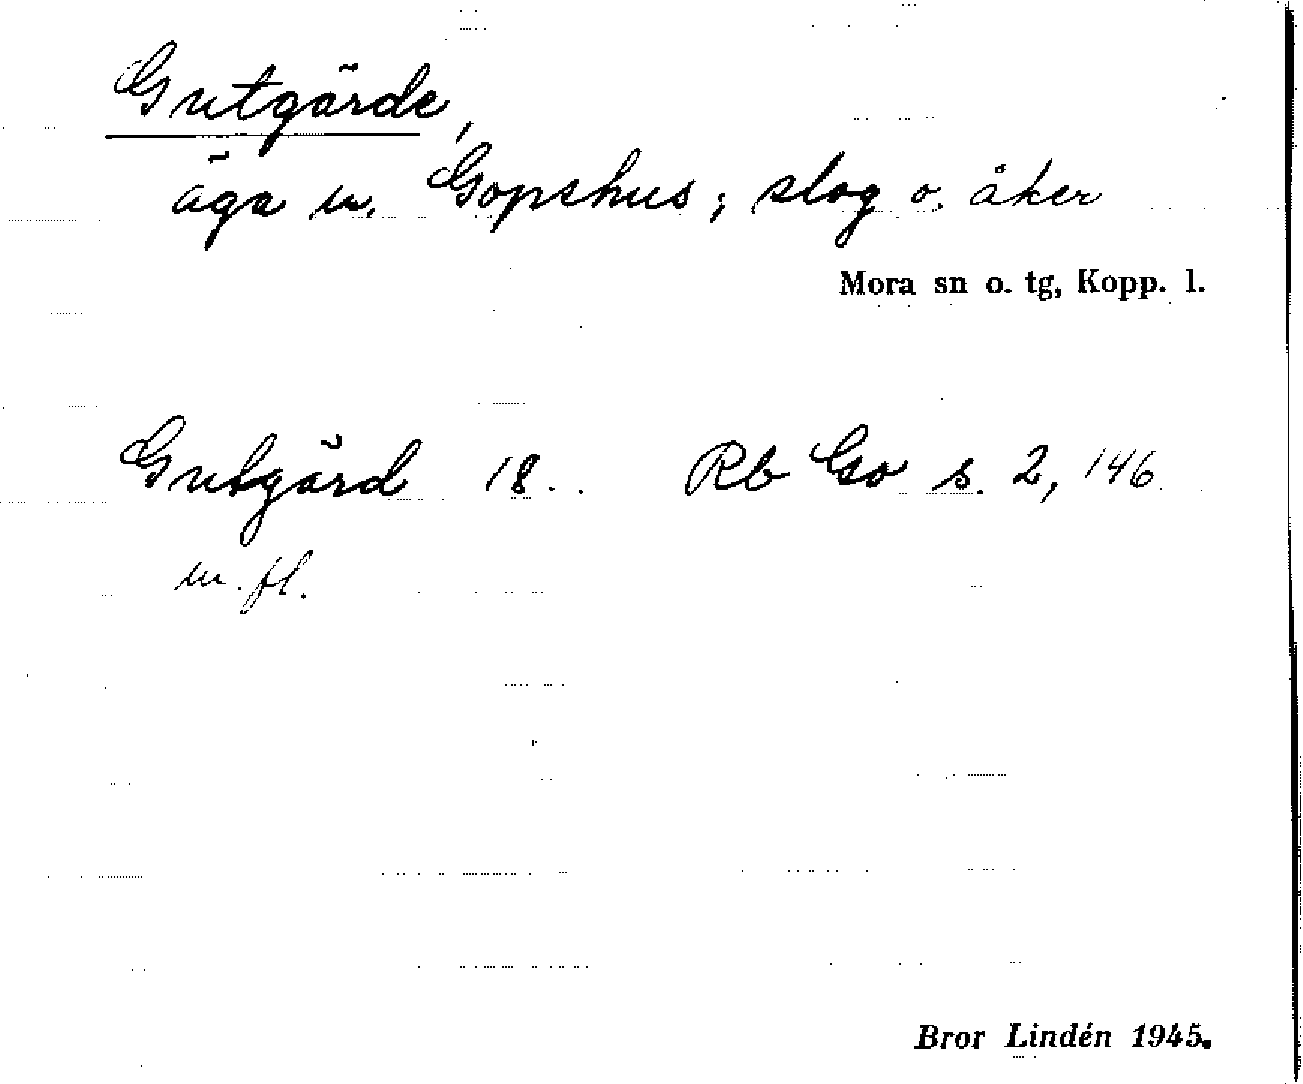 Gutgärde,
äga u. Gopshus; slog o. åker
Mora sn o. tg, Kopp. l.
Gutgärd 18.. Rb Go s. 2, 146
m. fl.
Bror Lindén 1945.